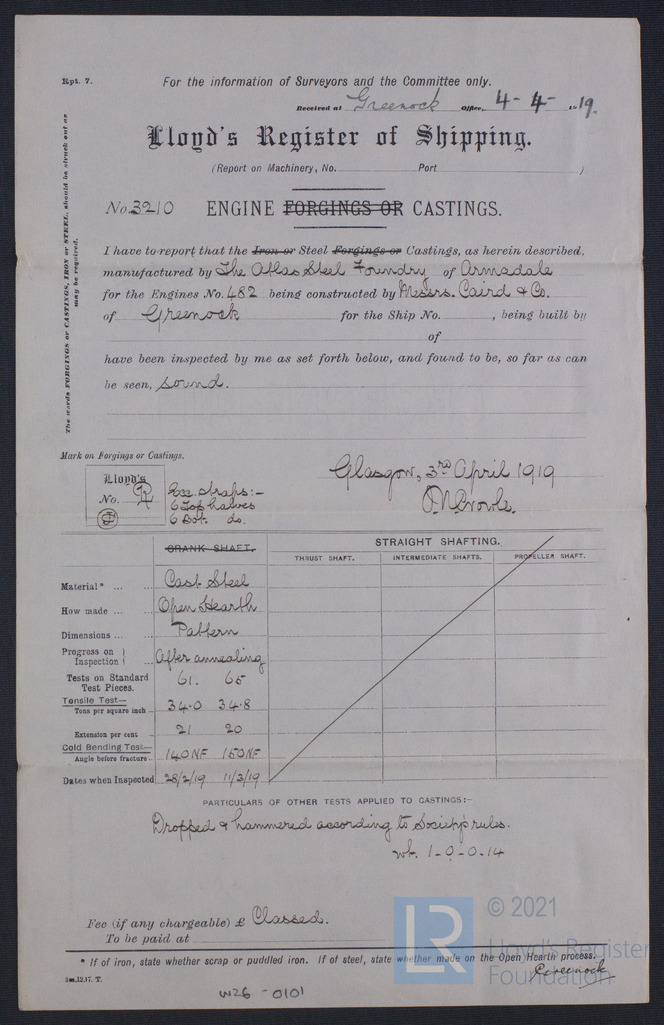 Rpt. 7.
For the information of Surveyors and the Committee only.
Received at Greenock Office, 4-4-1919.
Lloyd's Register of Shipping.
(Report on Machinery, No. Port )
No. 3210 ENGINE FORGINGS OR CASTINGS.
The words FORGINGS or CASTINGS, IRON or STEEL, should be struck out as
may be required.
I have to report that the Iron or Steel Forgings or Castings, as herein described,
manufactured by The Atlas Steel Foundry of Armadale
for the Engines No. 482 being constructed by Messrs. Caird & Co.
of Greenock for the Ship No. , being built by
of
have been inspected by me as set forth below, and found to be, so far as can
be seen, sound.
Mark on Forgings or Castings.
Glasgow, 3rd April 1919
Lloyd's
No.
Ecc. straps:-
6 Top halves
6 Bot. do.
CRANK SHAFT. STRAIGHT SHAFTING.
THRUST SHAFT. INTERMEDIATE SHAFTS. PROPELLER SHAFT.
Material* ... ... Cast Steel
How made ... ... Open Hearth
Dimensions ... ... Pattern
Progress on
Inspection ... After annealing
Tests on Standard
Test Pieces. 61. 65
Tensile Test—
Tons per square inch 34.0 34.8
Extension per cent 21 20
Cold Bending Test—
Angle before fracture 140NF 150NF
Dates when Inspected 28/2/19 11/3/19
PARTICULARS OF OTHER TESTS APPLIED TO CASTINGS:-
Dropped & hammered according to Society's rules.
wt. 1-0-0-14
Fee (if any chargeable) £ Classed.
To be paid at
* If of iron, state whether scrap or puddled iron. If of steel, state whether made on the Open Hearth process.
Greenock
3m.12.17. T.
W26-0101
LR
© 2021
Lloyd's Register
Foundation